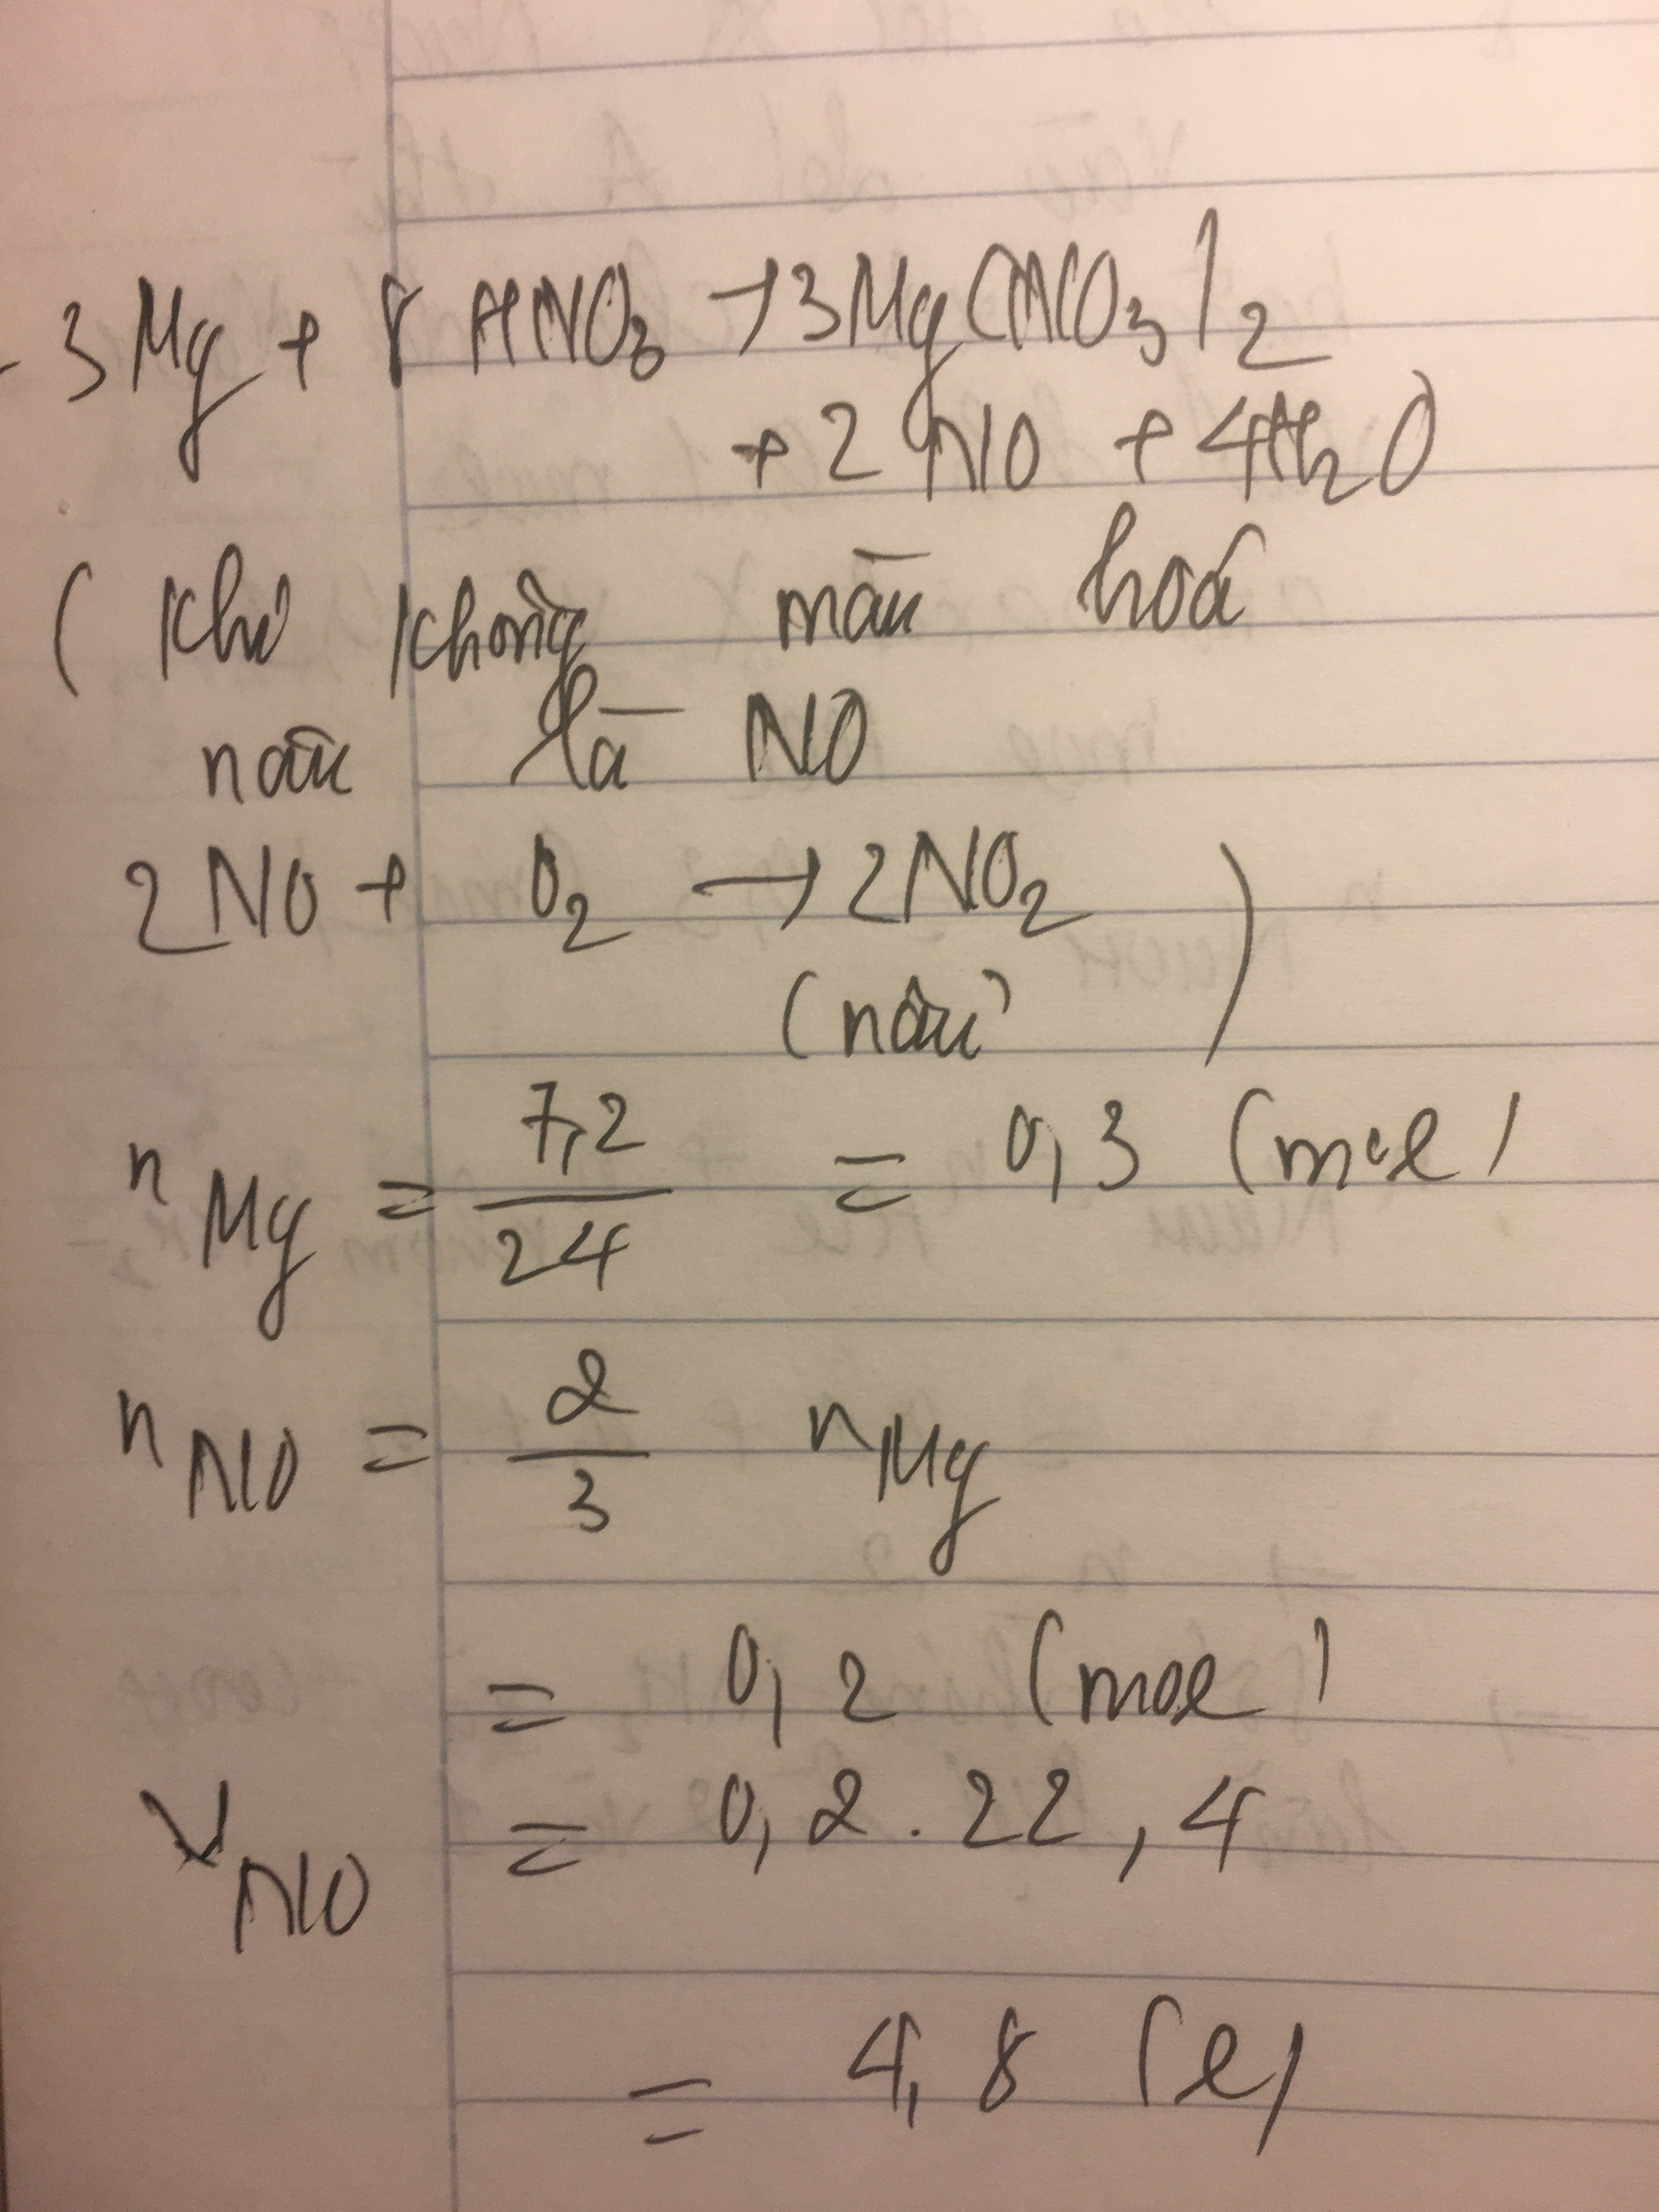 - 3Mg + 8 HNO3 → 3Mg(NO3)2
+ 2 NO + 4H2O
( Khí không màu hoá
nâu là NO
2NO + O2 → 2NO2 )
(nâu)
nMg = 7,2 / 24 = 0,3 (mol)
nNO = 2 / 3 nMg
= 0,2 (mol)
VNO = 0,2 . 22,4
= 4,8 (l)